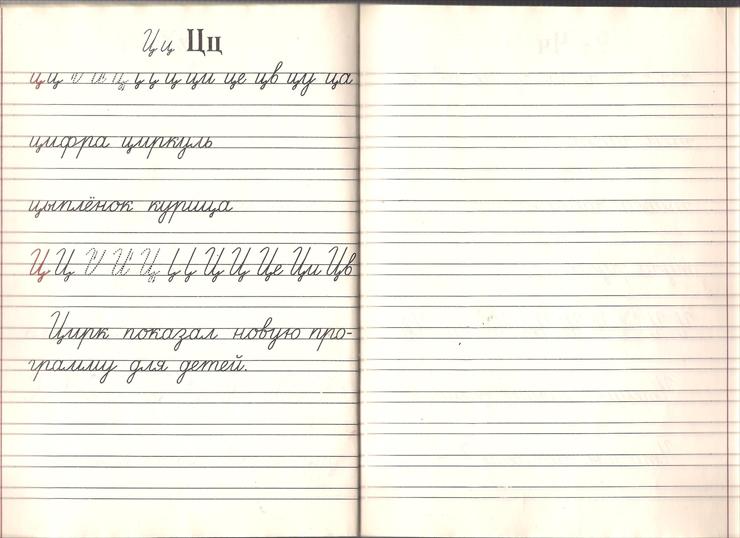 Цц Цц
цц и и ц ц ц ц ци це цв цу ца
цифра циркуль
цыплёнок курица
Ц Ц И И Ц Ц Ц Ц Ц Це Ци Цв
Цирк показал новую про-
грамму для детей.